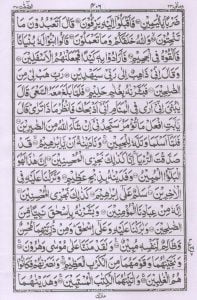 ومالى ٢٣ ٤٠٦ الصّٰفّٰت ٣٧
ضَرْبًۢا بِالْيَمِيْنِ ۝ فَاَقْبَلُوْۤا اِلَيْهِ يَزِفُّوْنَ ۝ قَالَ اَتَعْبُدُوْنَ مَا
تَنْحِتُوْنَ ۝ وَاللّٰهُ خَلَقَكُمْ وَمَا تَعْمَلُوْنَ ۝ قَالُوا ابْنُوْا لَهٗ بُنْيَانًا
فَاَلْقُوْهُ فِى الْجَحِيْمِ ۝ فَاَرَادُوْا بِهٖ كَيْدًا فَجَعَلْنٰهُمُ الْاَسْفَلِيْنَ ۝
وَقَالَ اِنِّىْ ذَاهِبٌ اِلٰى رَبِّىْ سَيَهْدِيْنِ ۝ رَبِّ هَبْ لِىْ مِنَ
الصّٰلِحِيْنَ ۝ فَبَشَّرْنٰهُ بِغُلٰمٍ حَلِيْمٍ ۝ فَلَمَّا بَلَغَ مَعَهُ السَّعْىَ قَالَ
يٰبُنَىَّ اِنِّىْۤ اَرٰى فِى الْمَنَامِ اَنِّىْۤ اَذْبَحُكَ فَانْظُرْ مَاذَا تَرٰى ؕ قَالَ
يٰۤاَبَتِ افْعَلْ مَا تُؤْمَرُ سَتَجِدُنِىْۤ اِنْ شَآءَ اللّٰهُ مِنَ الصّٰبِرِيْنَ ۝
فَلَمَّاۤ اَسْلَمَا وَتَلَّهٗ لِلْجَبِيْنِ ۝ وَنَادَيْنٰهُ اَنْ يّٰۤاِبْرٰهِيْمُ ۝ قَدْ
صَدَّقْتَ الرُّءْيَا ۚ اِنَّا كَذٰلِكَ نَجْزِى الْمُحْسِنِيْنَ ۝ اِنَّ هٰذَا
لَهُوَ الْبَلٰٓؤُا الْمُبِيْنُ ۝ وَفَدَيْنٰهُ بِذِبْحٍ عَظِيْمٍ ۝ وَتَرَكْنَا عَلَيْهِ فِى
الْاٰخِرِيْنَ ۝ سَلٰمٌ عَلٰۤى اِبْرٰهِيْمَ ۝ كَذٰلِكَ نَجْزِى الْمُحْسِنِيْنَ ۝
اِنَّهٗ مِنْ عِبَادِنَا الْمُؤْمِنِيْنَ ۝ وَبَشَّرْنٰهُ بِاِسْحٰقَ نَبِيًّا مِّنَ
الصّٰلِحِيْنَ ۝ وَبٰرَكْنَا عَلَيْهِ وَعَلٰۤى اِسْحٰقَ ؕ وَمِنْ ذُرِّيَّتِهِمَا مُحْسِنٌ
وَّظَالِمٌ لِّنَفْسِهٖ مُبِيْنٌ ۝ وَلَقَدْ مَنَنَّا عَلٰى مُوْسٰى وَهٰرُوْنَ ۝
وَنَجَّيْنٰهُمَا وَقَوْمَهُمَا مِنَ الْكَرْبِ الْعَظِيْمِ ۝ وَنَصَرْنٰهُمْ فَكَانُوْا
هُمُ الْغٰلِبِيْنَ ۝ وَاٰتَيْنٰهُمَا الْكِتٰبَ الْمُسْتَبِيْنَ ۝ وَهَدَيْنٰهُمَا